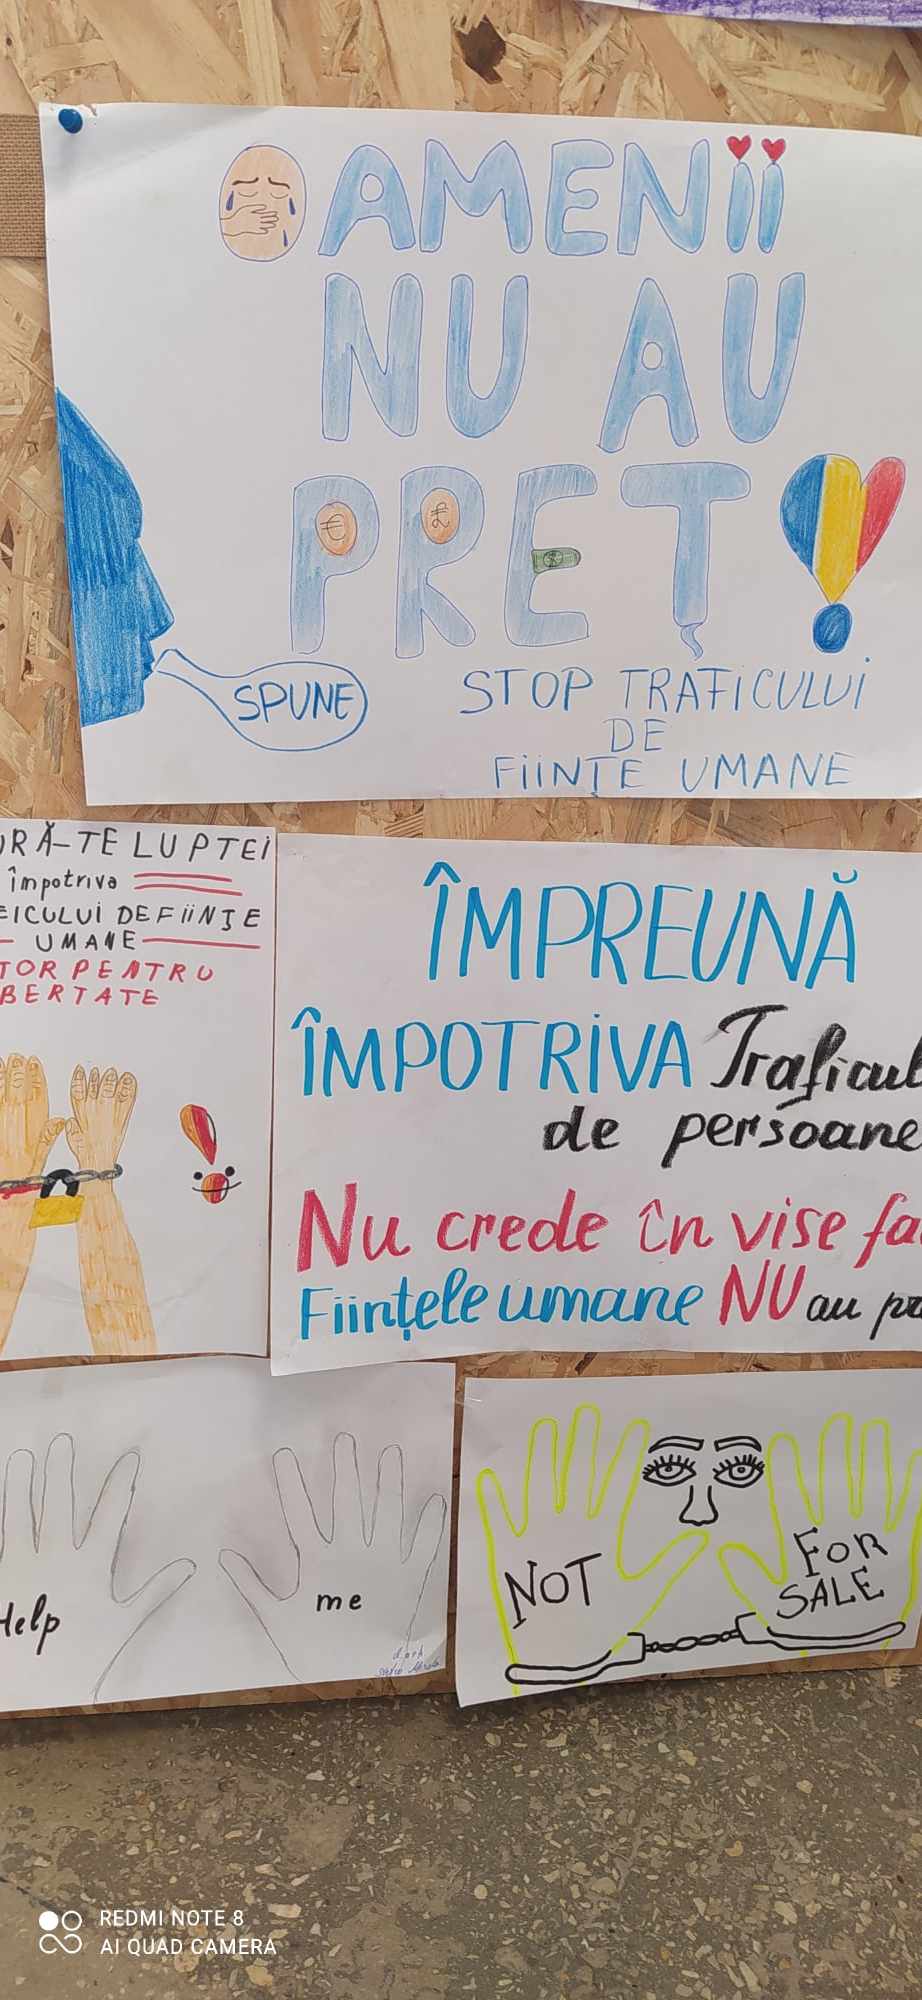 OAMENII
NU AU
PREȚ!
SPUNE
STOP TRAFICULUI
DE
FIINȚE UMANE
URĂ-TE LUPTEI
împotriva
FICULUI DE FIINȚE
UMANE
TOR PENTRU
BERTATE
!
ÎMPREUNĂ
ÎMPOTRIVA Traficul
de persoane
Nu crede în vise fa
Ființele umane NU au pr
Help me
NOT FOR
SALE
REDMI NOTE 8
AI QUAD CAMERA